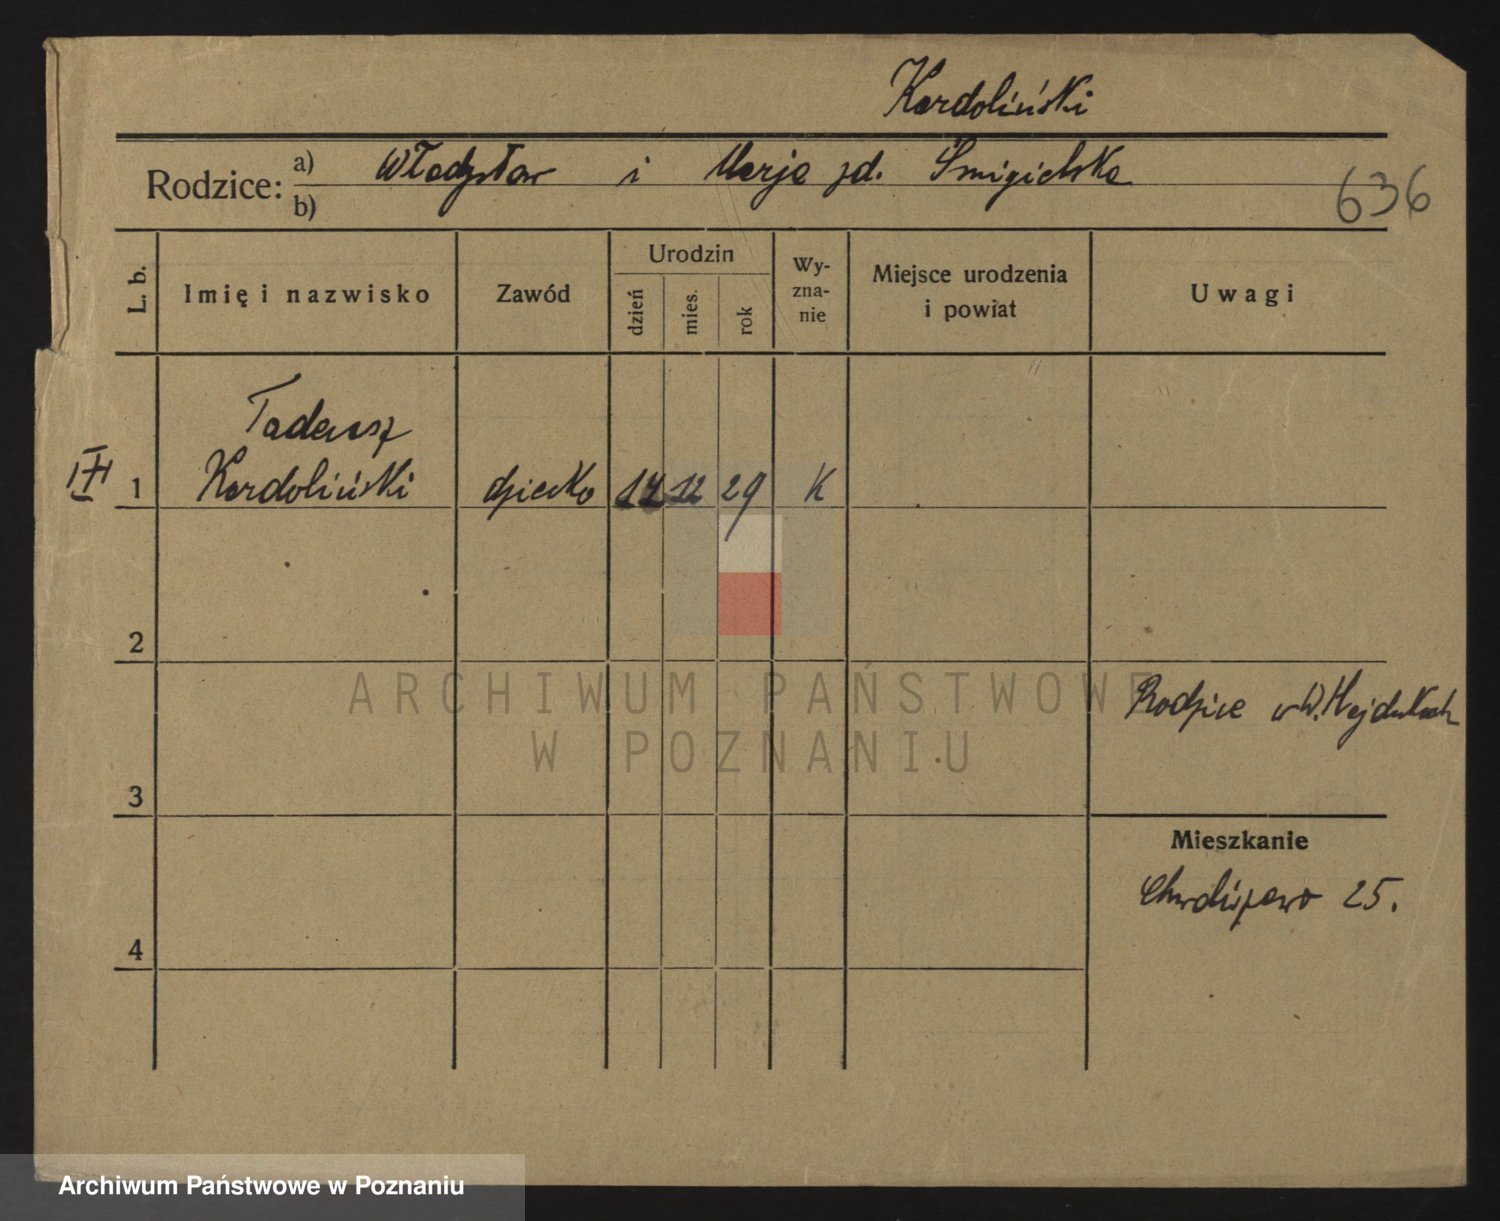 Kardoliński
Rodzice: a) Władysław i Marja zd. Śmigielska
b)
636
L. b.
Imię i nazwisko
Zawód
Urodzin
dzień
mies.
rok
Wy-
zna-
nie
Miejsce urodzenia
i powiat
Uwagi
Tadeusz
1 Kardoliński dziecko 14 12 29 K
2
Rodzice w W. Hajdukach
3
Mieszkanie
Chwaliszewo 25.
4
ARCHIWUM PAŃSTWOWE
W POZNANIU
Archiwum Państwowe w Poznaniu